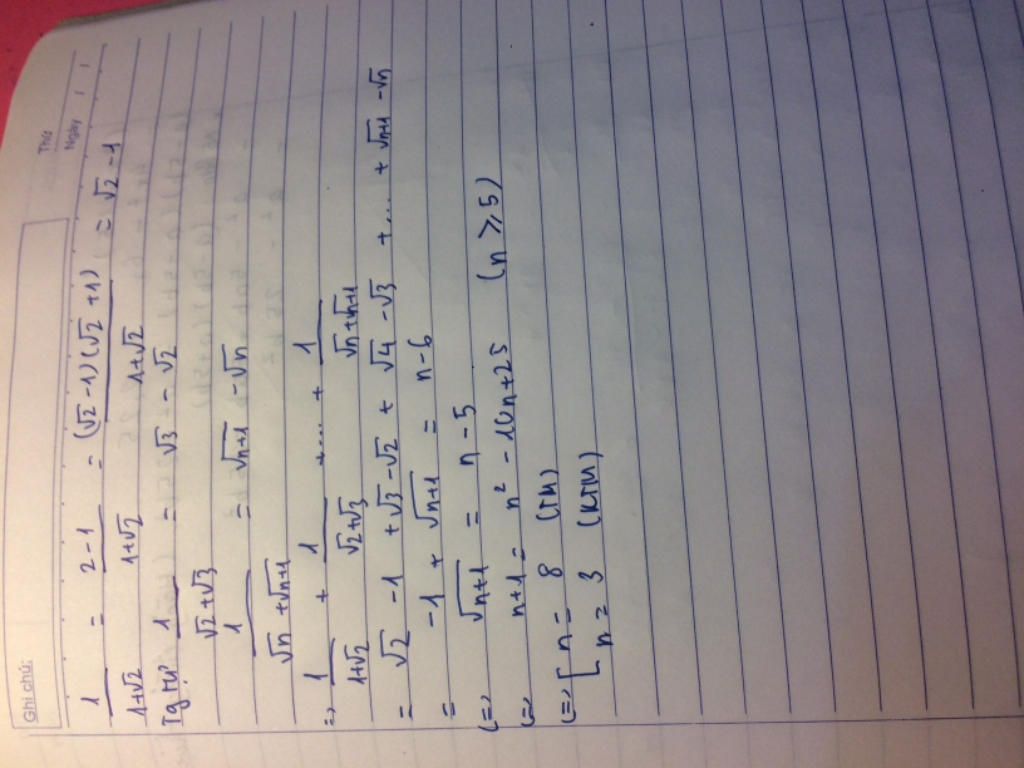 Ghi chú:
Thứ
Ngày / /
1/(1+√2) = (2-1)/(1+√2) = (√2-1)(√2+1)/(1+√2) = √2-1
Tg tự: 1/(√2+√3) = √3 - √2
1/(√n+√n+1) = √n+1 - √n
=> 1/(1+√2) + 1/(√2+√3) + .... + 1/(√n+√n+1)
= √2 - 1 + √3 - √2 + √4 - √3 + ... + √n+1 - √n
= -1 + √n+1 = n-6
<=> √n+1 = n-5
<=> n+1 = n² - 10n+25 (n ≥ 5)
<=> [ n = 8 (TM)
n = 3 (KTM)